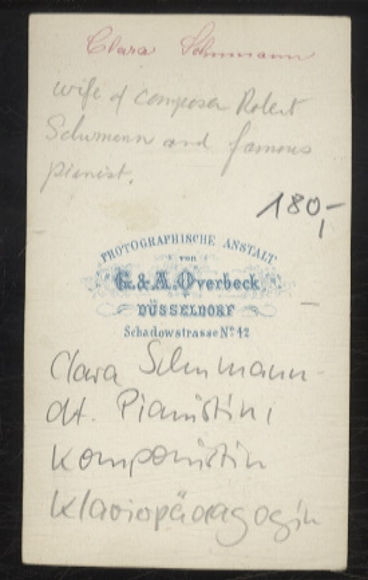 Clara Schumann
wife of composer Robert
Schumann and famous
pianist.
180,-
PHOTOGRAPHISCHE ANSTALT
von
G. & A. Overbeck
DÜSSELDORF
Schadowstrasse No. 42
Clara Schumann -
dt. Pianistin,
Komponistin
Klavierpädagogin